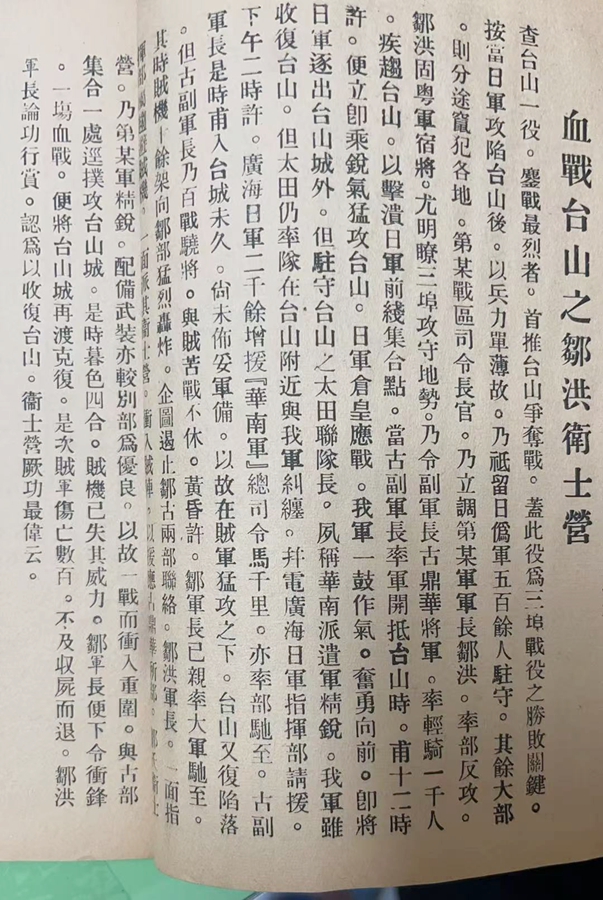 血戰台山之鄒洪衛士營
查台山一役。鏖戰最烈者。首推台山爭奪戰。蓋此役爲三埠戰役之勝敗關鍵。
按當日軍攻陷台山後。以兵力單薄故。乃祗留日僞軍五百餘人駐守。其餘大部
。則分途竄犯各地。第某戰區司令長官。乃立調第某軍軍長鄒洪。率部反攻。
鄒洪固粵軍宿將。尤明瞭三埠攻守地勢。乃令副軍長古鼎華將軍。率輕騎一千人
。疾趨台山。以擊潰日軍前綫集合點。當古副軍長率軍開抵台山時。甫十二時
許。便立卽乘銳氣猛攻台山。日軍倉皇應戰。我軍一鼓作氣。奮勇向前。卽將
日軍逐出台山城外。但駐守台山之太田聯隊長。夙稱華南派遣軍精銳。我軍雖
收復台山。但太田仍率隊在台山附近與我軍糾纏。幷電廣海日軍指揮部請援。
下午二時許。廣海日軍二千餘增援『華南軍』總司令馬千里。亦率部馳至。古副
軍長是時甫入台城未久。尙未佈妥軍備。以故在賊軍猛攻之下。台山又復陷落
。但古副軍長乃百戰驍將。與賊苦戰不休。黃昏許。鄒軍長已親率大軍馳至。
其時賊機十餘架向鄒部猛烈轟炸。企圖遏止鄒古兩部聯絡。鄒洪軍長。一面指
賊機。一面派其衛士營。衝入賊陣。以援應古鼎華所部。
營。乃第某軍精銳。配備武裝亦較別部爲優良。以故一戰而衝入重圍。與古部
集合一處逕撲攻台山城。是時暮色四合。賊機已失其威力。鄒軍長便下令衝鋒
。一塲血戰。便將台山城再渡克復。是次賊軍傷亡數百。不及収屍而退。鄒洪
軍長論功行賞。認爲以收復台山。衞士營厥功最偉云。